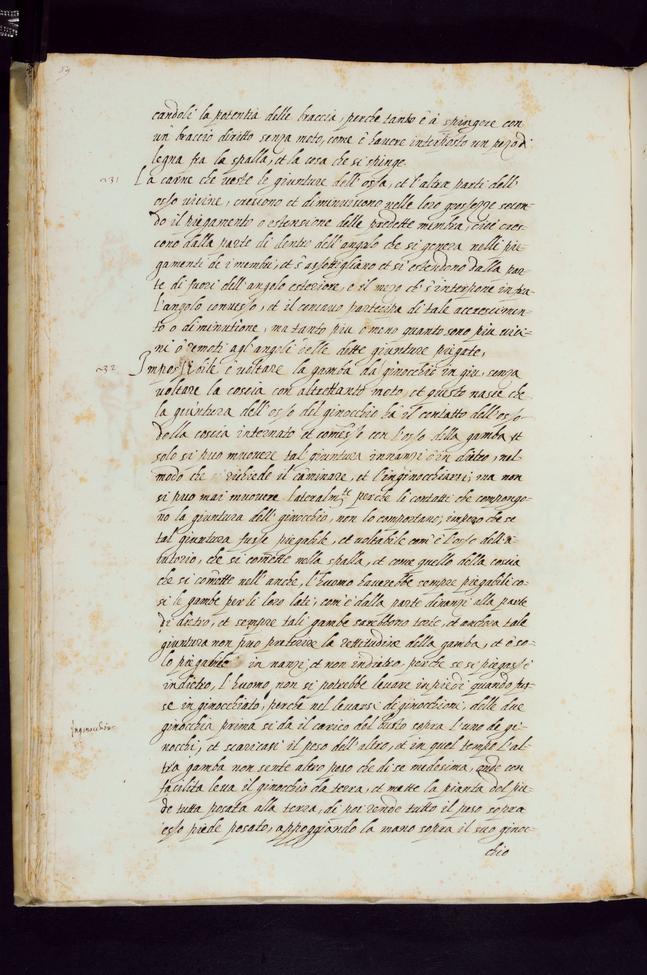 candoli la potentia delle braccia, perche tanto è à spingere con
un braccio diritto senza moto, come è havere interposto un pezo di
legna fra la spalla, et la cosa che si spinge
231 La carne che veste le giunture dell'ossa, et l'altre parti dell'
osso vicine, crescono et diminuiscono nelle loro grossezze secon-
do il piegamento o estensione delle predette membra, cioè cres-
cono dalla parte di dentro dell'angolo che si genera nelli pie-
gamenti de i membri, et s'assottigliano et si estendono dalla par-
te di fuori dell'angolo esteriore, e il mezo ch' s'interpone infra
l'angolo convesso, et il concavo partecipa di tale accrescimen-
to o diminutione, ma tanto piu o meno quanto sono piu vici-
ni ò remoti agl'angoli delle dette giunture piegate,
232 Impossibile è voltare la gamba da ginocchio in giu, senza
voltare la coscia con altrettanto moto, et questo nasce che
la giuntura dell'osso del ginocchio hà il contatto dell'osso
della coscia internato et comesso con l'osso della gamba et
solo si può muovere tal giuntura innanzi ò in dietro, nel
modo che richiede il caminare, et l'inginocchiarsi; ma non
si puo mai muovere lateralmte perche li contatti che compongo-
no la giuntura dell' ginocchio, non lo comportano; impero che se
tal giuntura fusse piegabile, et voltabile com'è l'osso dell'a-
iutorio, che si comette nella spalla, et come quello della coscia
che si comette nell'anche, l'huomo haverebbe sempre piegabili co-
si le gambe per li loro lati, com'è dalla parte dinanzi alla parte
di dietro, et sempre tali gambe sarebbono torte, et ancora tale
giuntura non puo preterire la rettitudine della gamba, et è so-
lo piegabile in nanzi et non indietro, perche se si piegasse
indietro, l'huomo non si potrebbe levare in piedi quando fus-
se in ginocchiato, perche nel levarsi di ginocchioni, delle due
Inginocchiar
ginocchia prima si da il carico del busto sopra l'uno de gi-
nocchi, et scaricasi il peso dell'altro, et in quel tempo l'al-
tra gamba non sente altro peso che di se medesima, onde con
facilità leva il ginocchio da terra, et mette la pianta del pie-
de tutta posata alla terra, di poi rende tutto il peso sopra
esso piede posato, appoggiando la mano sopra il suo ginoc-
chio